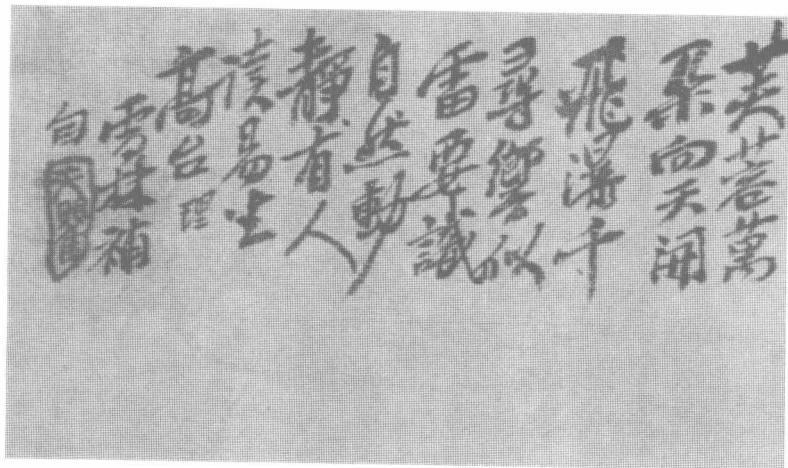 芙蓉萬
朶向天開
飛瀑千
尋響似
雷要識
自然動
靜有人
讀易坐
髙台理
雲林補
句